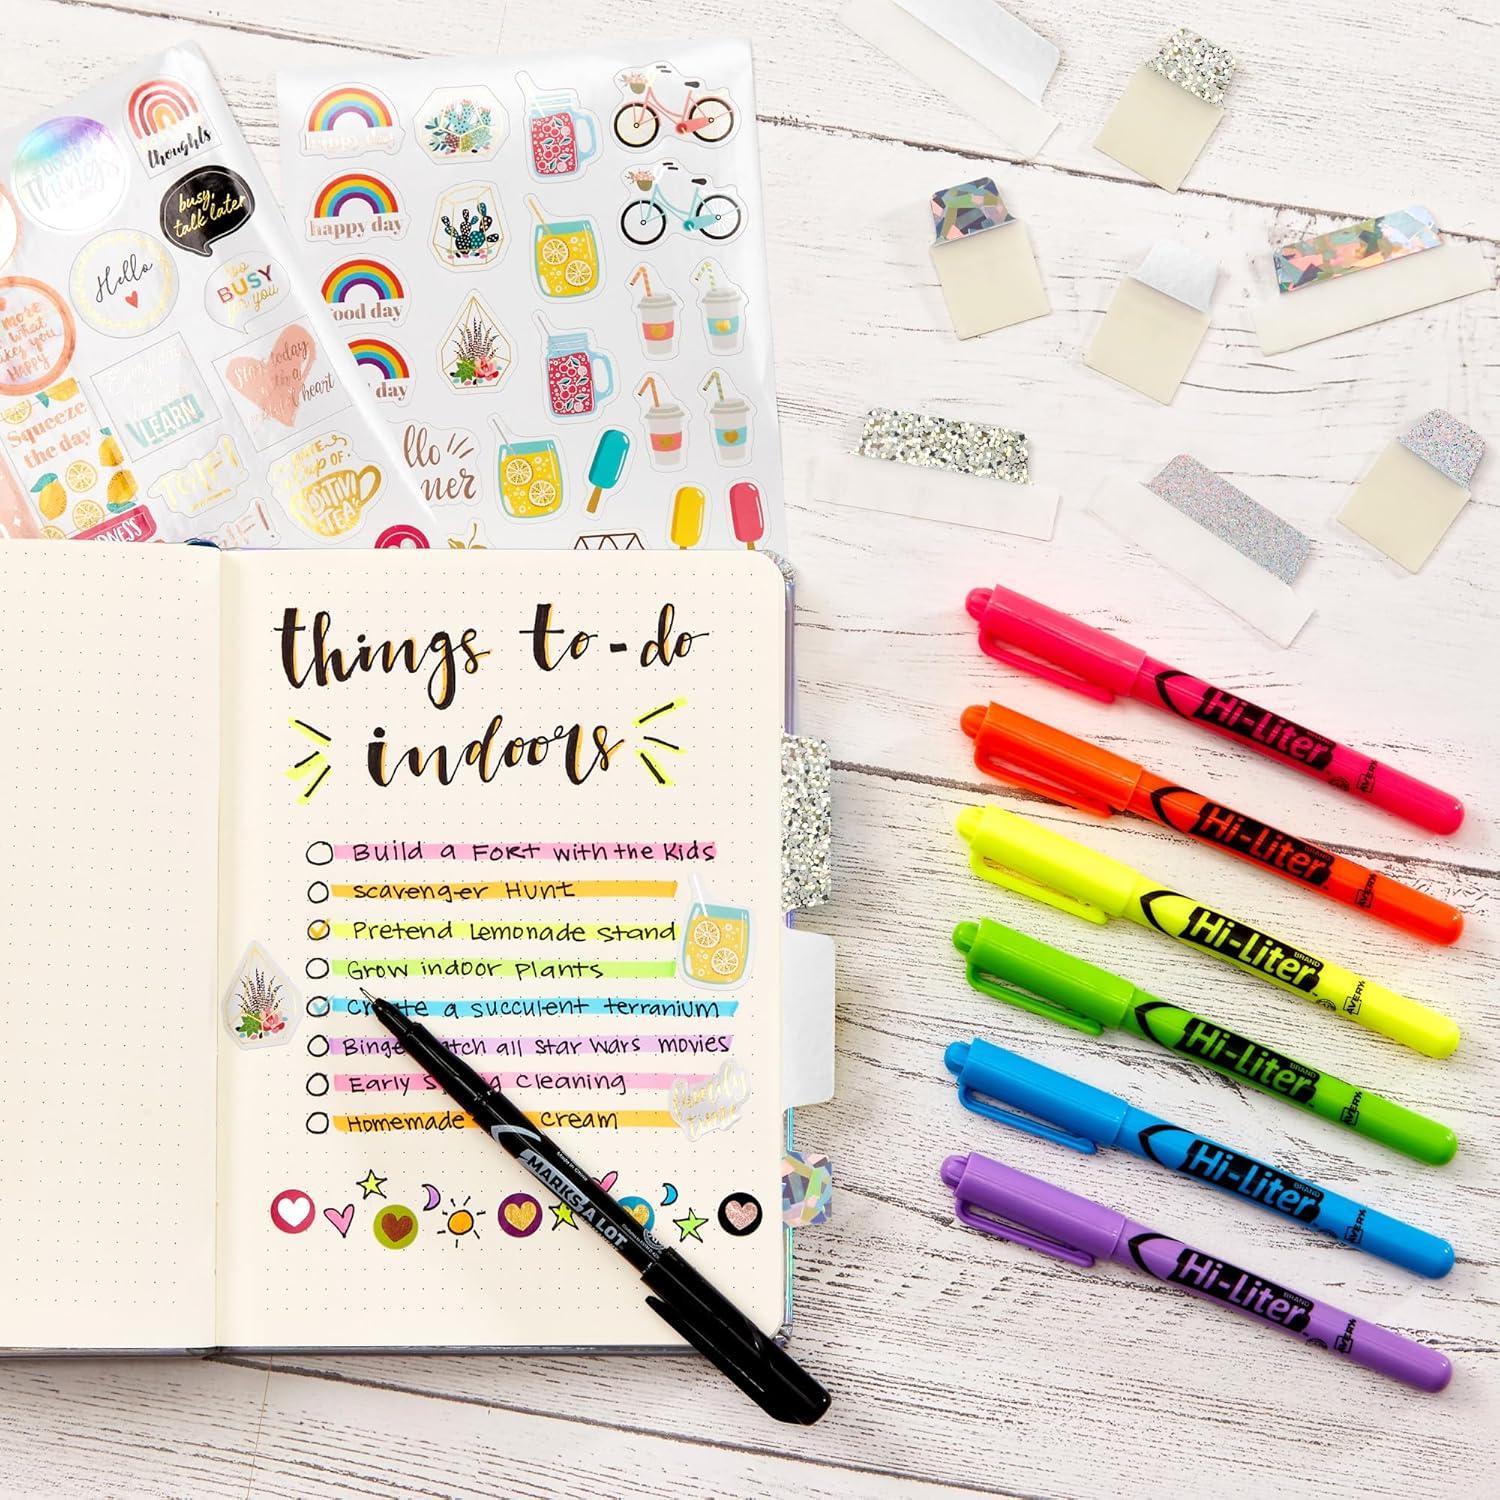 thoughts
busy,
talk later
Hello
too
BUSY
for you
more
what
makes you
HAPPY
Squeeze
the day
LEARN
Start today
with a
heart
cup of
POSITIVI
TEA
happy day
happy day
good day
day
things to-do
indoors
Build a FORT with the Kids
Scavenger Hunt
Pretend Lemonade Stand
Grow indoor plants
Create a succulent terranium
Binge watch all Star Wars movies
Early Cleaning
Homemade Cream
family
time
MARKS A LOT
Hi-Liter
BRAND
AVERY
Hi-Liter
BRAND
AVERY
Hi-Liter
BRAND
AVERY
Hi-Liter
BRAND
AVERY
Hi-Liter
BRAND
AVERY
Hi-Liter
BRAND
AVERY